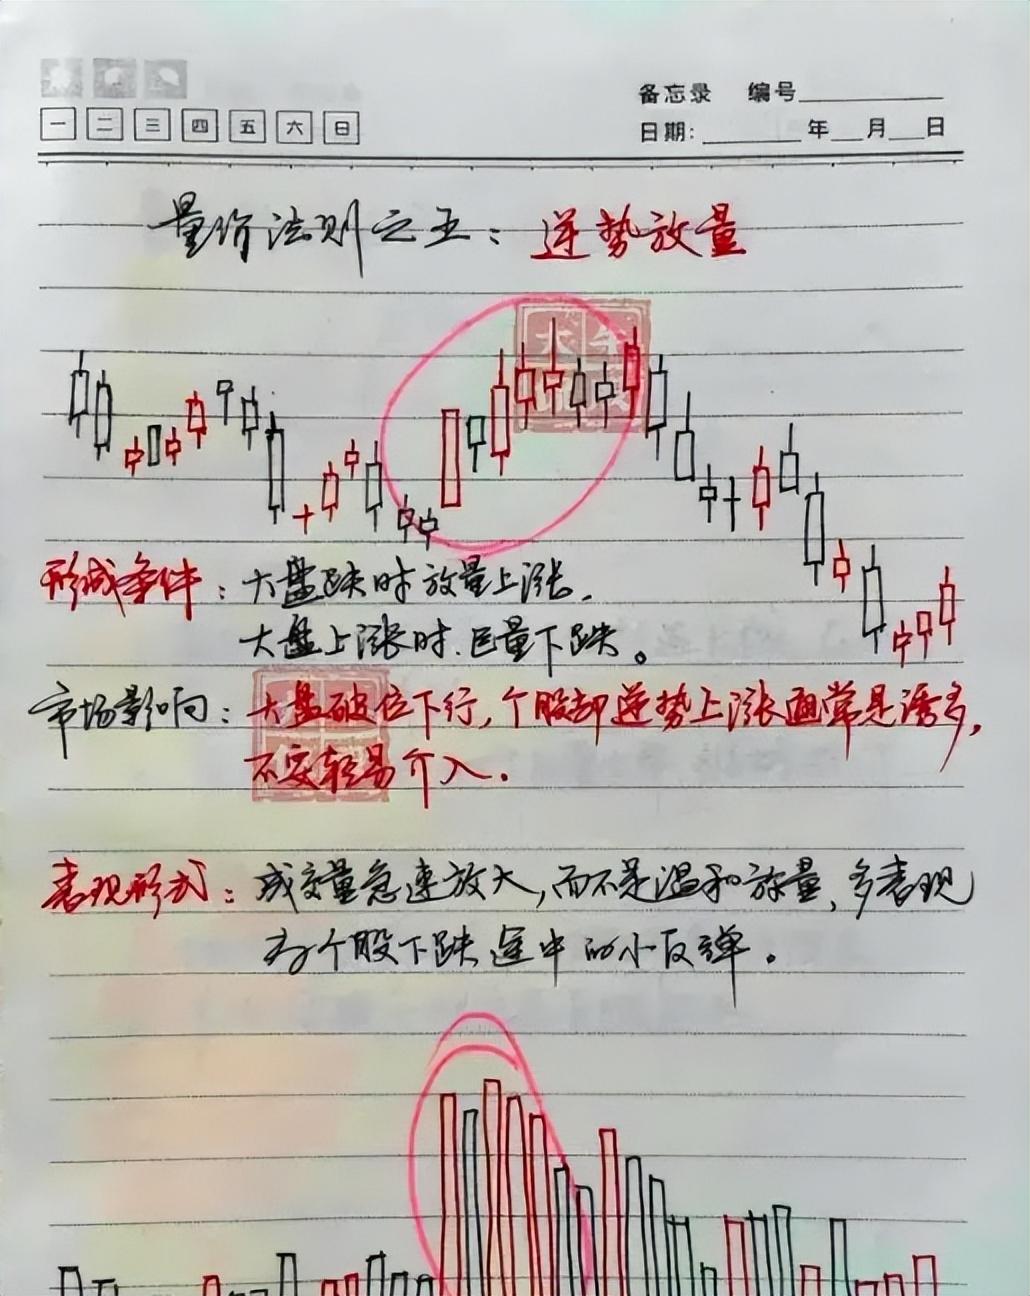 备忘录 编号
一 二 三 四 五 六 日
日期: 年 月 日
量价法则之五：逆势放量
形成条件：大盘跌时放量上涨，
大盘上涨时.巨量下跌。
市场影响：大盘破位下行，个股却逆势上涨通常是诱多，
不宜轻易介入.
表现形式：成交量急速放大，而不是温和放量，多表现
为个股下跌途中的小反弹。